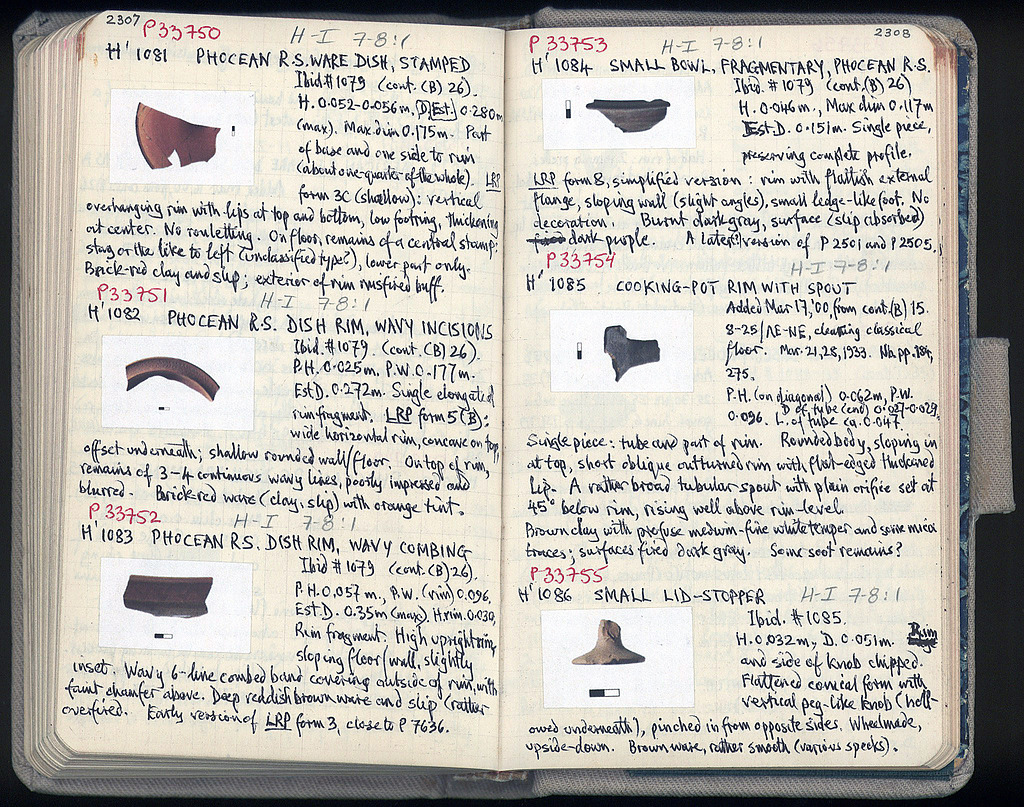 2307
P 33750
H-I 7-8:1
H' 1081 PHOCEAN R.S. WARE DISH, STAMPED
Ibid #1079 (cont. (B) 26).
H. 0.052-0.056m, D. Est. 0.280m
(max). Max. dim 0.175m. Part
of base and one side to rim
(about one-quarter of the whole). LRP
form 3C (shallow): vertical
overhanging rim with lips at top and bottom, low footring, thickening
at center. No rouletting. On floor, remains of a central stamp:
stag or the like to left (unclassified type?), lower part only.
Brick-red clay and slip; exterior of rim misfired buff.
P33751
H-I 7-8:1
H' 1082 PHOCEAN R.S. DISH RIM, WAVY INCISIONS
Ibid. #1079. (cont. (B) 26).
P.H. 0.025m, P.W. 0.177m.
Est D. 0.272m. Single elongated
rim fragment. LRP form 5 (B):
wide horizontal rim, concave on top,
offset underneath; shallow rounded wall/floor. On top of rim,
remains of 3-4 continuous wavy lines, poorly impressed and
blurred. Brick-red ware (clay, slip) with orange tint.
P33752
H-I 7-8:1
H' 1083 PHOCEAN R.S. DISH RIM, WAVY COMBING
Ibid #1079 (cont. (B) 26).
P.H. 0.057m., P.W. (rim) 0.096,
Est D. 0.35m (max). H. rim. 0.030.
Rim fragment. High upright rim,
sloping floor/wall, slightly
inset. Wavy 6-line combed band covering outside of rim, with
faint chamfer above. Deep reddish brown ware and slip (rather
overfired. Early version of LRP form 3, close to P 7636.
2308
P33753
H-I 7-8:1
H' 1084 SMALL BOWL, FRAGMENTARY, PHOCEAN R.S.
Ibid. #1079 (cont. (B) 26)
H. 0.046m, Max dim 0.117m
Est. D. 0.151m. Single piece,
preserving complete profile.
LRP form 8, simplified version: rim with flattish external
flange, sloping wall (slight angles), small ledge-like foot. No
decoration. Burnt dark gray, surface (slip absorbed)
dark purple. A later(?) version of P 2501 and P 2505.
P33754
H-I 7-8:1
H' 1085 COOKING-POT RIM WITH SPOUT
Added Mar 17, '00, from cont. (B) 15.
8-25/ΛE-NE, cleaning classical
floor. Mar. 21, 28, 1933. Nb. pp. 184,
275.
P.H. (on diagonal) 0.062m, P.W.
0.096. D. of tube (end) 0.027-0.029,
L. of tube ca. 0.047.
Single piece: tube and part of rim. Rounded body, sloping in
at top, short oblique outturned rim with flat-edged thickened
lip. A rather broad tubular spout with plain orifice set at
45° below rim, rising well above rim-level.
Brown clay with profuse medium-fine white temper and some mica
traces; surfaces fired dark gray. Some soot remains?
P33755
H' 1086 SMALL LID-STOPPER H-I 7-8:1
Ibid. #1085.
H. 0.032m, D. 0.051m. Rim
and side of knob chipped.
Flattened conical form with
vertical peg-like knob (holl-
owed underneath), pinched in from opposite sides. Wheelmade,
upside-down. Brown ware, rather smooth (various specks).